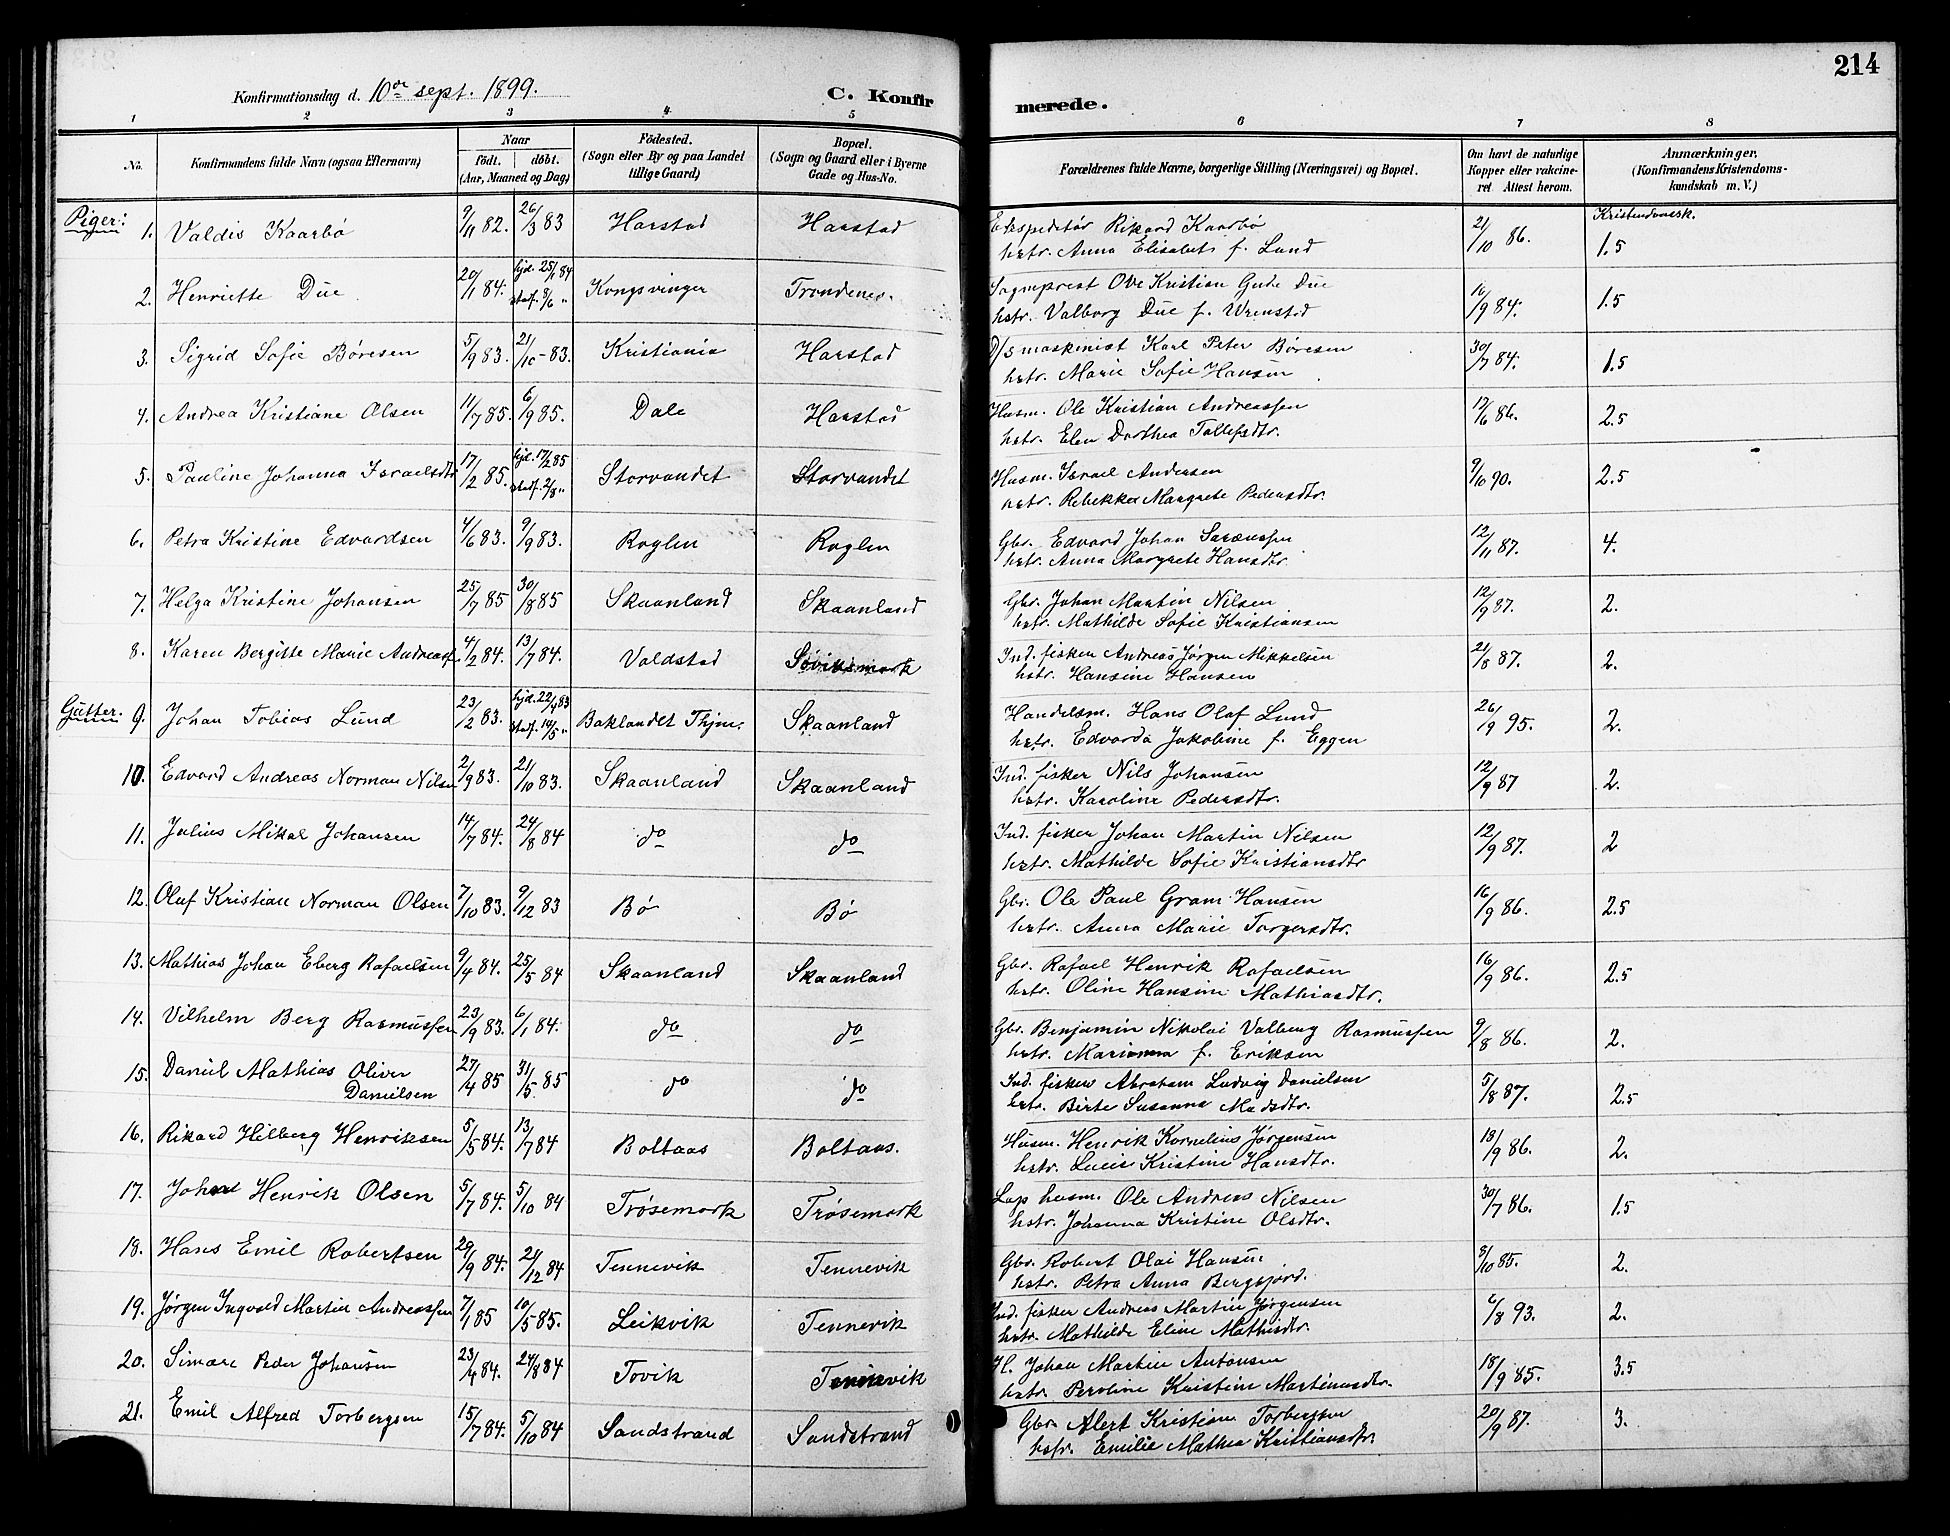 214
Konfirmationsdag d. 10de sept. 1899. C. Konfirmerede.
1 2 3 4 5 6 7 8
No. Konfirmandens fulde Navn (ogsaa Efternavn) Naar födt. döbt. (Aar, Maaned og Dag) Födested. (Sogn eller By og paa Landet tillige Gaard) Bopæl. (Sogn og Gaard eller i Byerne Gade og Hus-No. Forældrenes fulde Navne, borgerlige Stilling (Næringsvei) og Bopæl. Om havt de naturlige Kopper eller vakcineret. Attest herom. Anmærkninger. (Konfirmandens Kristendomskundskab m. V.)
Piger: 1. Valdis Kaarbø 9/11 82. 26/3 83 Harstad Harstad Ekspeditør Rikard Kaarbø 21/10 86. Kristendomsk. 1.5
hstr. Anna Elisabet f. Lund
2. Henriette Due 20/1 84. hjd. 25/1 84 stadf. 8/6 " Kongsvinger Trondenes. Sogneprest Ove Kristian Gude Due 16/9 84. 1.5
hstr. Valborg Due f. Wrenstad
3. Sigrid Sofie Børesen 5/9 83. 21/10-83. Kristiania Harstad D/s maskinist Karl Peter Børesen 30/7 84. 1.5
hstr. Marie Sofie Hansen
4. Andrea Kristiane Olsen 11/7 85. 6/9 85. Dale Harstad Husm. Ole Kristian Andreassen 12/6 86. 2.5
hstr. Elen Dorthea Tollefsdtr.
5. Pauline Johanna Israelsdtr 17/2 85. hjd. 17/2 85 stadf. 2/8 " Storvandet Storvandet Husm. Israel Andersen 9/10 90. 2.5
hstr. Rebekka Margrete Pedersdtr.
6. Petra Kristine Edvardsen 4/6 83. 9/9 83. Roglen Roglen Gbr. Edvard Johan Sørenssen 12/11 87. 4.
hstr. Anna Margrete Hansdtr.
7. Helga Kristine Johansen 25/7 85 30/8 85 Skaanland Skaanland Gbr. Johan Martin Nilsen 12/9 87. 2.
hstr. Mathilde Sofie Kristiansen
8. Karen Bergitte Marie Andreass. 4/2 84. 13/7 84. Voldstad Søviksmark Ind. fisker Andreas Jørgen Mikkelsen 21/8 87. 2.
hstr. Hansine Hansen
Gutter: 9. Johan Tobias Lund 23/2 83. hjd. 22/4 83 stadf. 14/5 " Baklandet Thjm. Skaanland Handelsm. Hans Olaf Lund 26/9 95. 2.
hstr. Edvarda Jakobine f. Eggen
10. Edvard Andreas Norman Nilsen 2/9 83. 21/10 83. Skaanland Skaanland Ind. fisker Nils Johansen 12/9 87 2.
hstr. Karoline Pedersdtr.
11. Julius Mikal Johansen 14/7 84. 24/8 84 do do Ind. fisker Johan Martin Nilsen 12/9 87. 2
hstr. Mathilde Sofie Kristiansdtr
12. Oluf Kristian Norman Olsen 7/10 83. 9/12 83 Bø Bø Gbr. Ole Paul Gram Hansen 16/9 86. 2.5
hstr. Anna Marie Torgersdtr.
13. Mathias Johan Eberg Rafaelsen 9/4 84. 25/5 84 Skaanland Skaanland Gbr. Rafael Henrik Rafaelsen 16/9 86. 2.5
hstr. Oline Hansine Mathiasdtr.
14. Vilhelm Berg Rasmussen 23/9 83. 6/1 84. do do Gbr. Benjamin Nikolai Valberg Rasmussen 9/8 86. 2.
hstr. Marianna f. Eriksen
15. Daniel Mathias Oliver Danielsen 27/4 85 31/5 85 do do Ind. fisker Abraham Ludvig Danielsen 5/8 87. 2.5
hstr. Birte Susanna Madsdtr.
16. Rikard Hilberg Henriksen 5/5 84. 13/7 84 Boltaas Boltaas. Husm. Henrik Kornelius Jørgensen 18/9 86. 2.
hstr. Lucie Kristine Hansdtr.
17. Johan Henrik Olsen 5/7 84. 5/10 84 Trøsemark Trøsemark Lap husm. Ole Andreas Nilsen 30/7 86. 1.5
hstr. Johanna Kristine Olsdtr.
18. Hans Emil Robertsen 29/9 84. 21/12 84 Tennevik Tennevik Gbr. Robert Olai Hansen 8/10 85. 2.
hstr. Petra Anna Bergsjord.
19. Jørgen Ingvald Martin Andreassen 7/1 85 10/5 85. Leikvik Tennevik Ind. fisker Andreas Martin Jørgensen 6/8 93. 2.
hstr. Mathilde Eline Mathisdtr.
20. Simare Peder Johansen 23/4 84. 24/8 84 Tovik Tennevik H. Johan Martin Antonsen 18/9 85. 3.5
hstr. Peroline Kristine Martinusdtr.
21. Emil Alfred Torbergsen 15/7 84. 5/10 84 Sandstrand Sandstrand Gbr. Alert Kristian Torbergsen 20/9 87. 3.
hstr. Emilie Mathea Kristiansdtr.